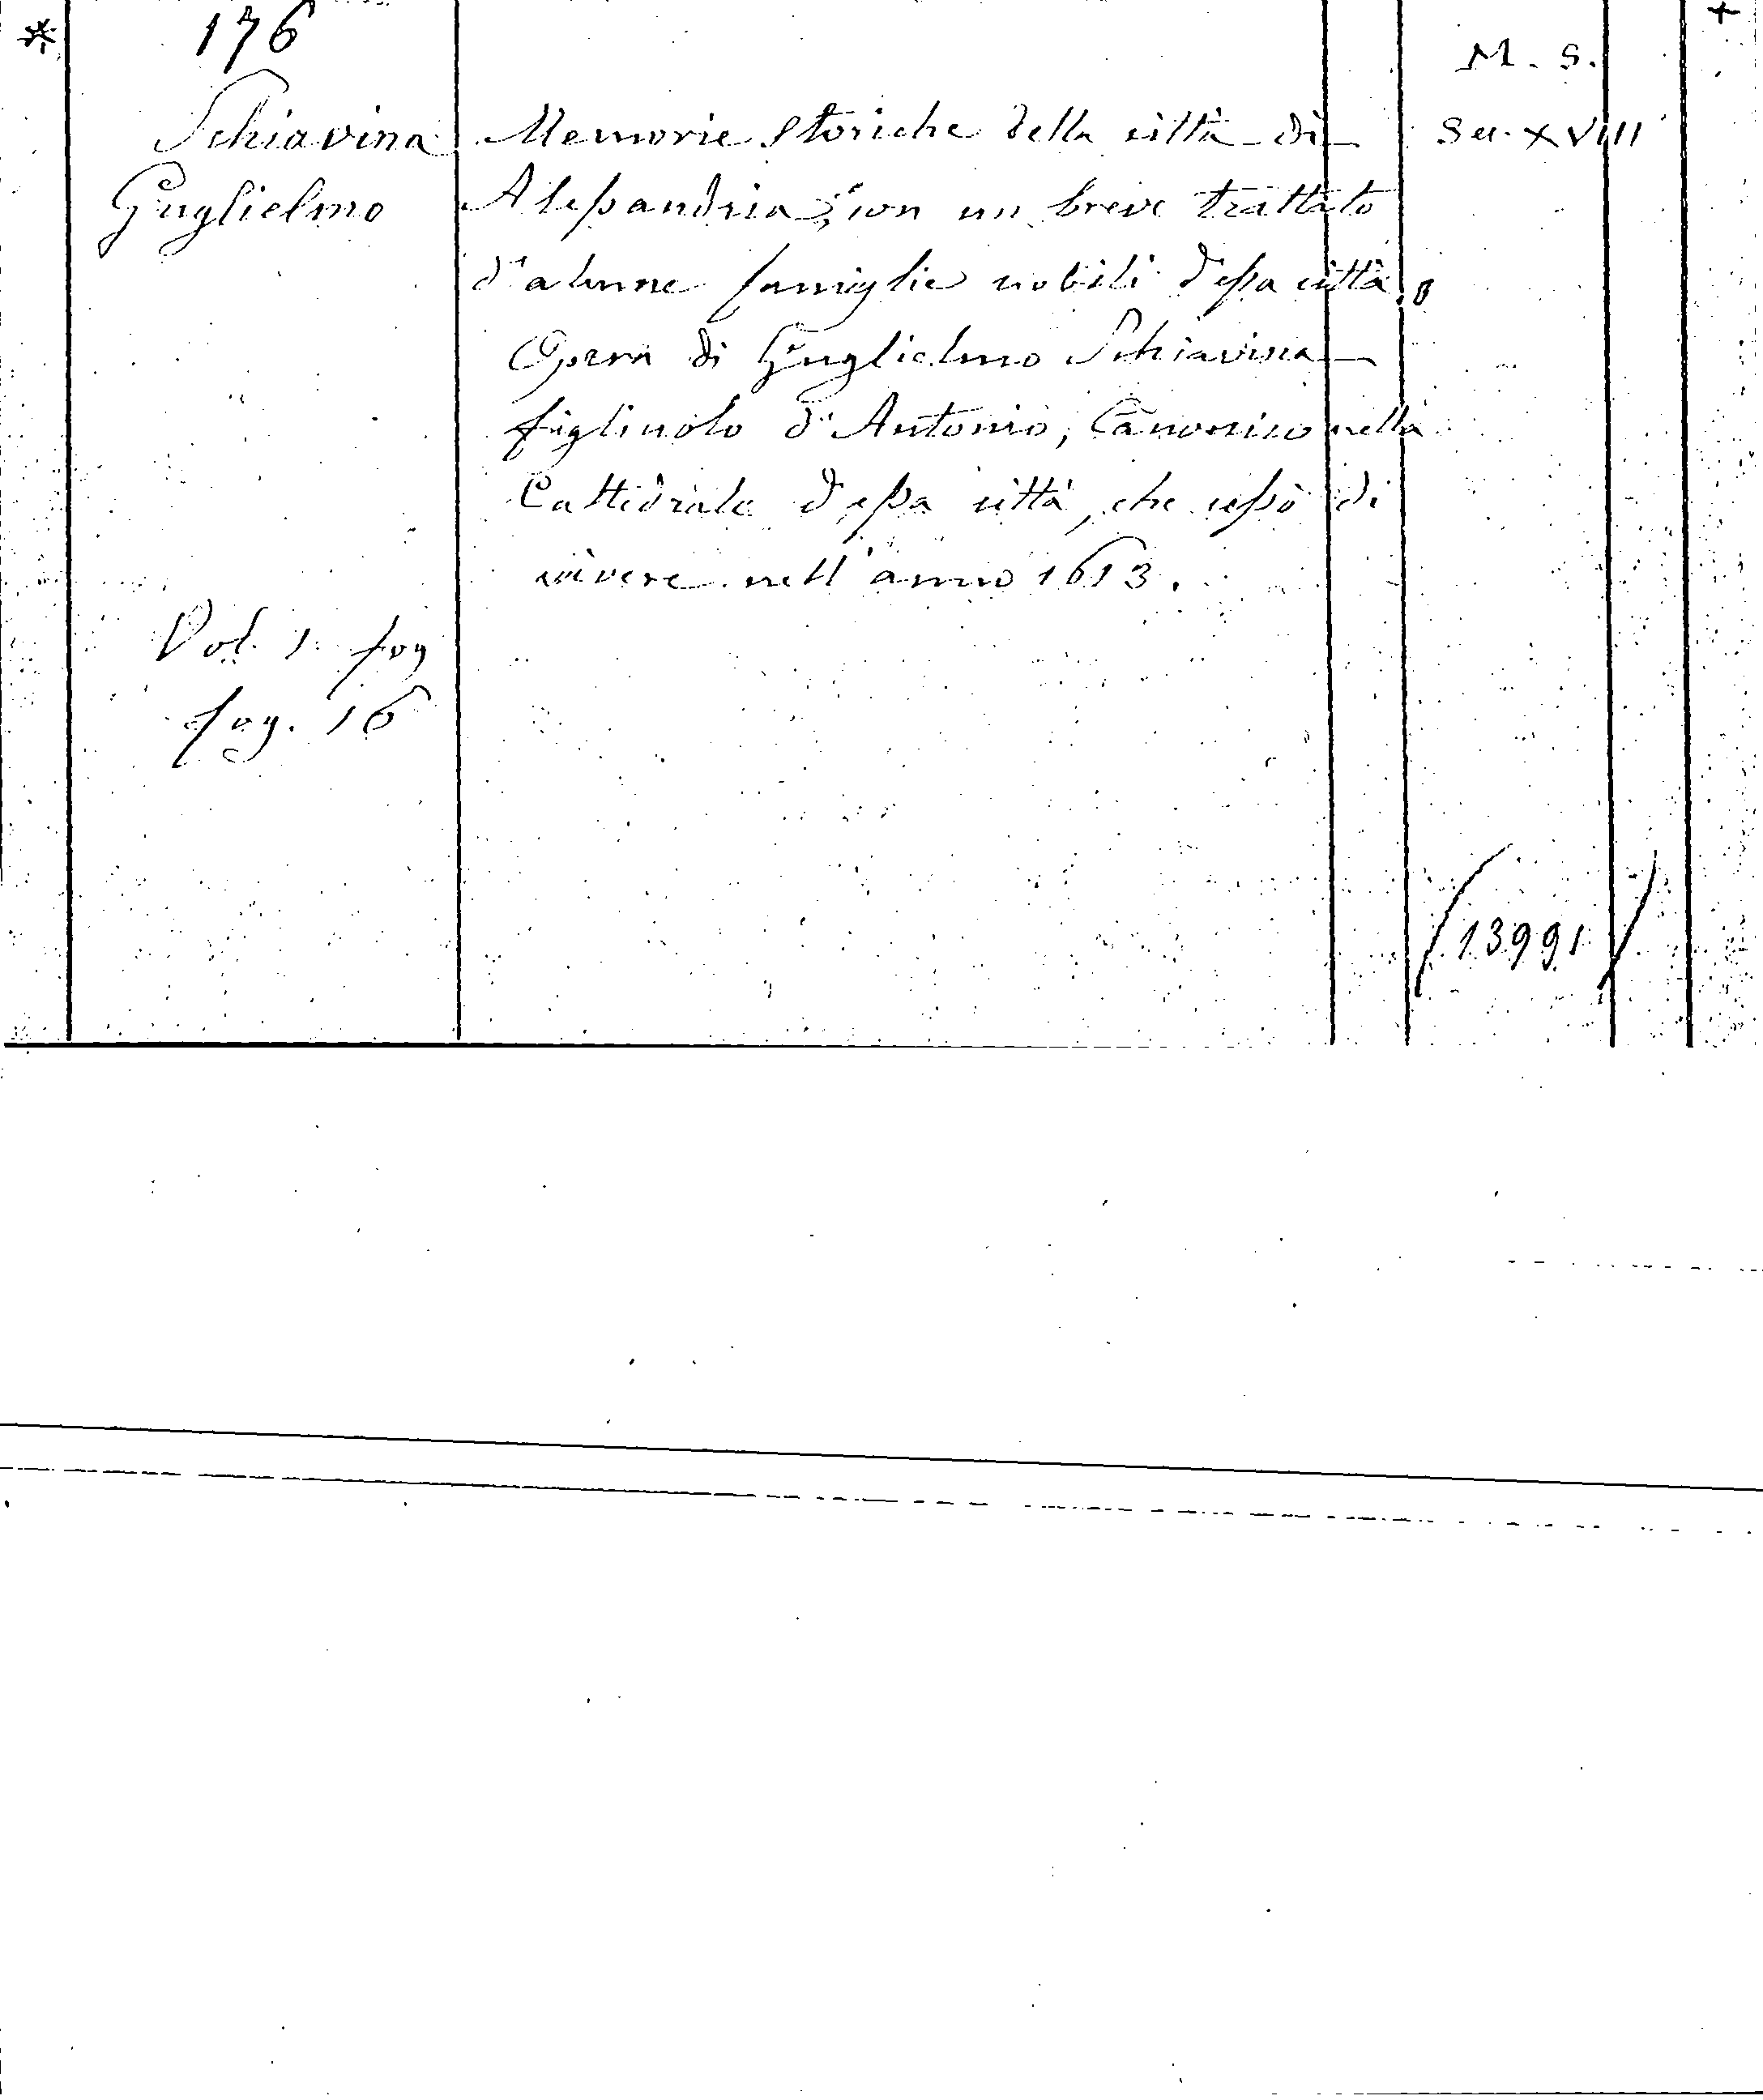 * 176 +
M. S.
Schiavina Memorie Storiche della città di Sec. XVIII
Guglielmo Aleßandria; con un breve trattato
d'alcune famiglie nobili d'eßa città.
Opera di Guglielmo Schiavina
figliuolo d'Antonio, Canonico nella
Cattedrale d'eßa città, che ceßò di
vivere nell'anno 1613.
Vol. 1. fog
fog. 16
(13991)